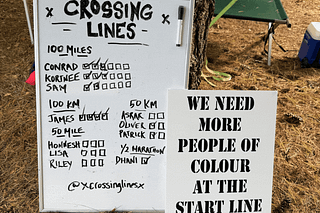 CROSSING
LINES
100 MILES
CONRAD
KORTNEE
SAM
100 KM
JAMES
50 MILE
HONNESH
LISA
RILEY
50 KM
ASAK
OLIVER
PATRICK
1/2 MARATHON
DHANI
@xcrossinglinesx
WE NEED
MORE
PEOPLE OF
COLOUR
AT THE
START LINE